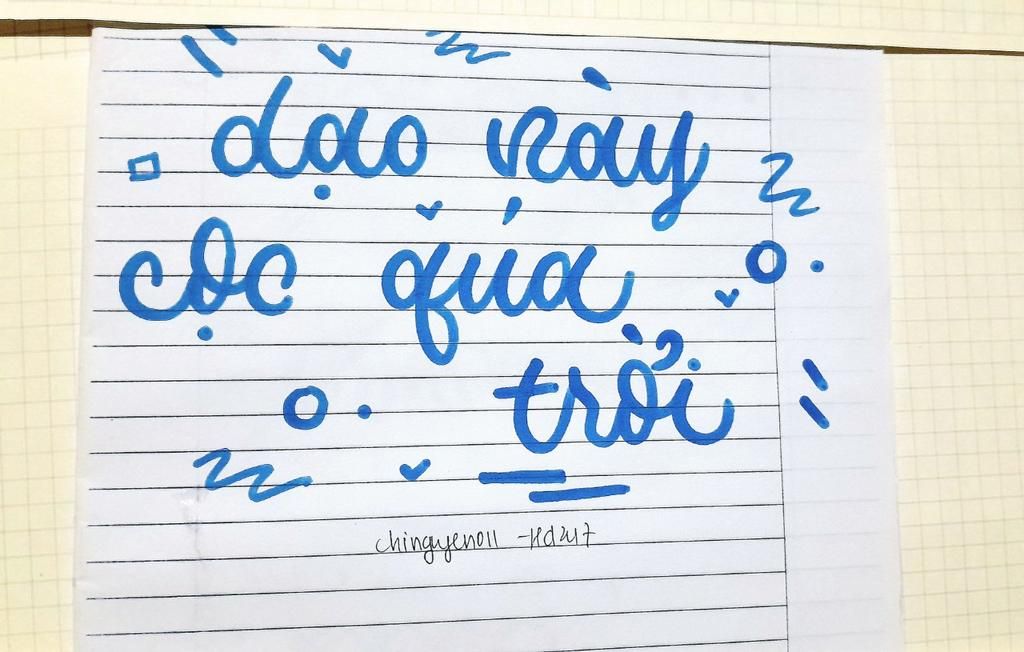 dạo này
cọc quá
trời
chinguyen011